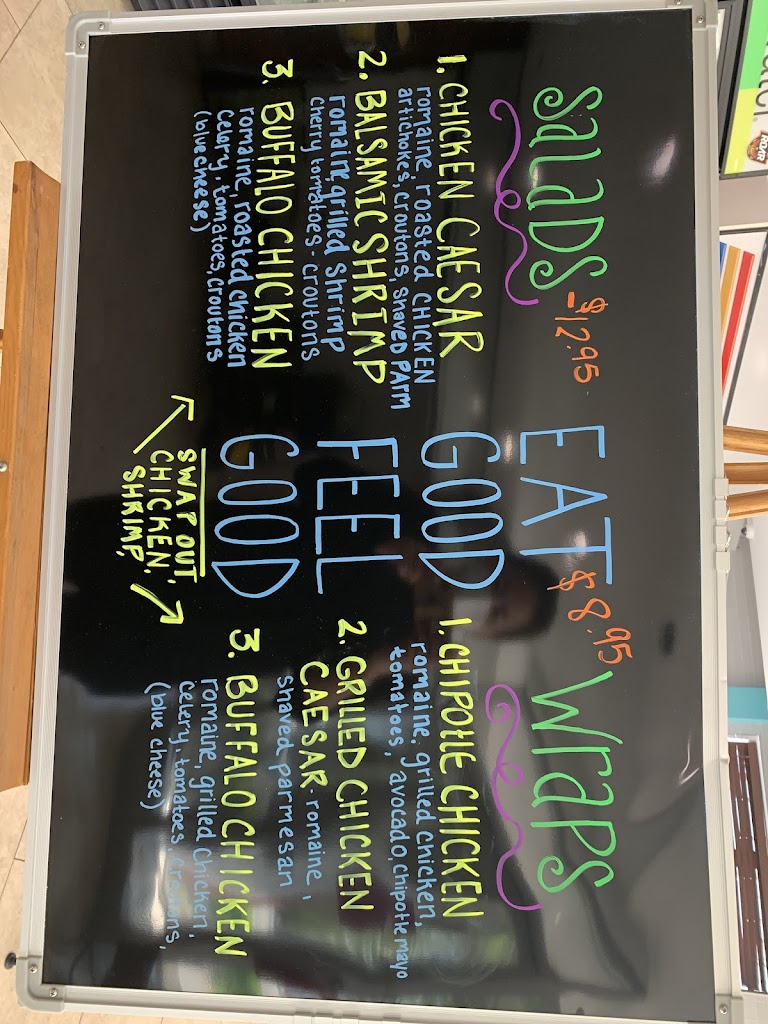 SALADS -$12.95
1. CHICKEN CAESAR
romaine, roasted CHICKEN
artichokes, croutons, shaved PARM
2. BALSAMIC SHRIMP
romaine, grilled Shrimp
cherry tomatoes - croutons
3. BUFFALO CHICKEN
romaine, roasted chicken
celery, tomatoes, croutons
(blue cheese)
EAT
GOOD
FEEL
GOOD
SWAP OUT,
CHICKEN,
SHRIMP,
$8.95 WRAPS
1. CHIPOTLE CHICKEN
romaine, grilled chicken,
tomatoes, avocado, chipotle mayo
2. GRILLED CHICKEN
CAESAR - romaine,
shaved parmesan
3. BUFFALO CHICKEN
romaine, grilled chicken,
celery, tomatoes, croutons,
(blue cheese)
ROAR